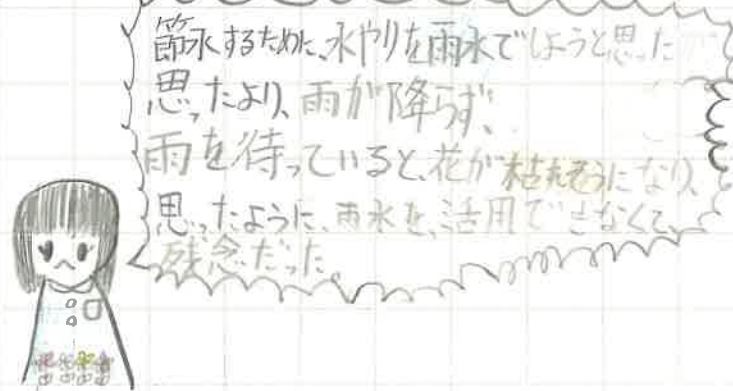 節水するために、水やりを雨水でしようと思った
思ったより、雨が降らず、
雨を待っていると、花が枯れそうになり、
思ったように、雨水を、活用できなくて、
残念だった。